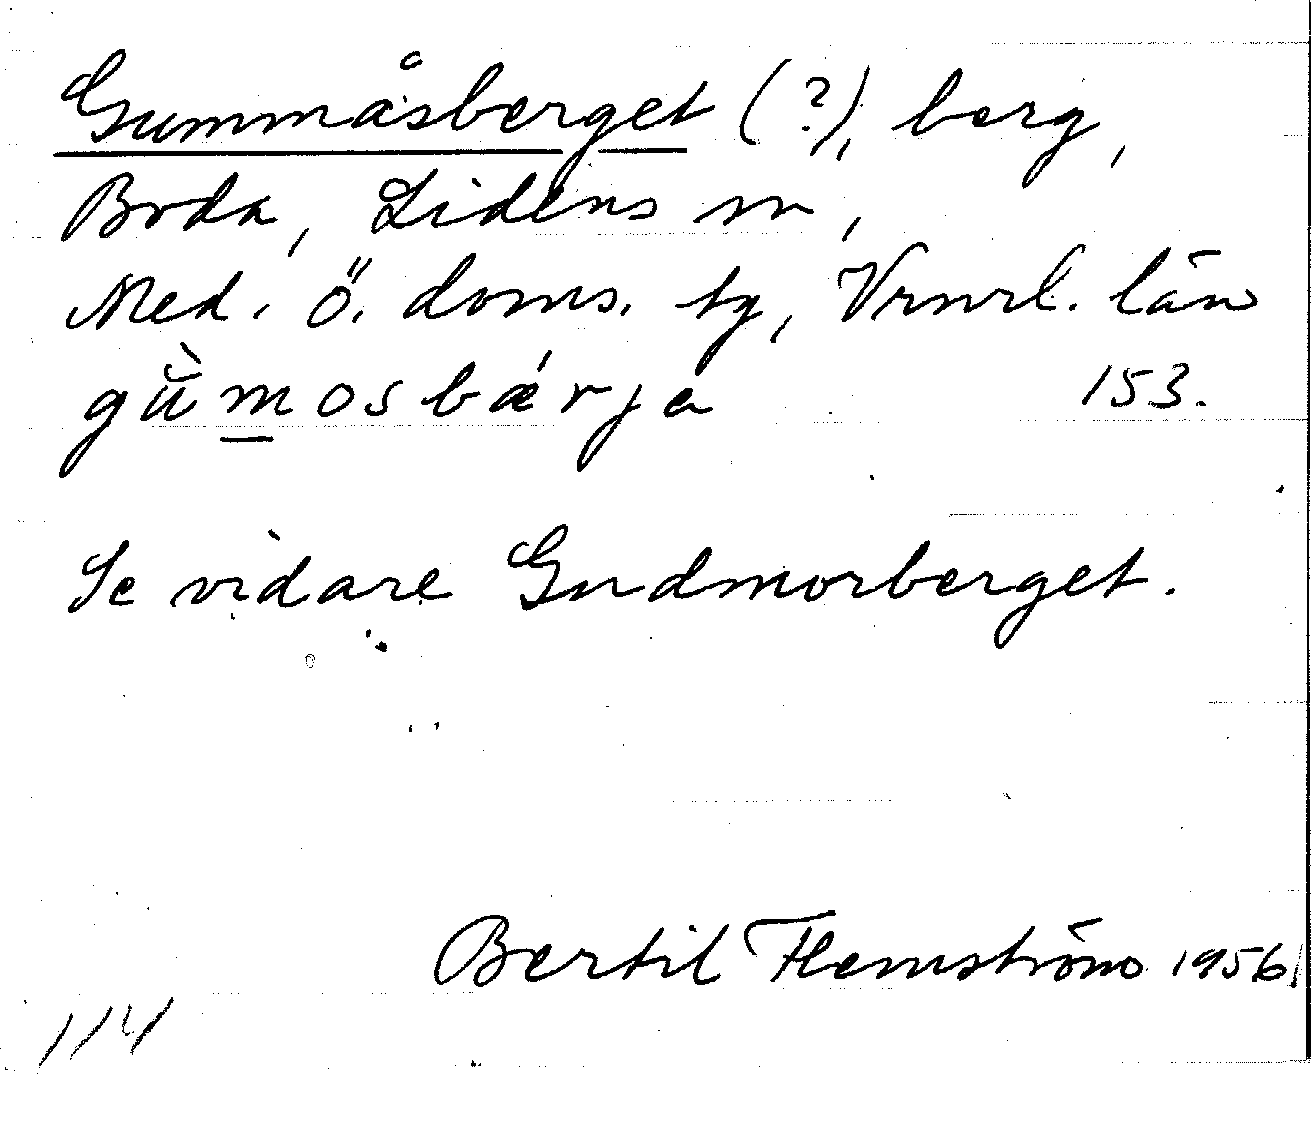 Gummåsberget (?), berg,
Boda, Lidens sn,
Med. ö. doms. tg, Vrnrl. län
gùmosbǽrja 153.
Se vidare Gudmorberget.
Bertil Flemström 1956
114